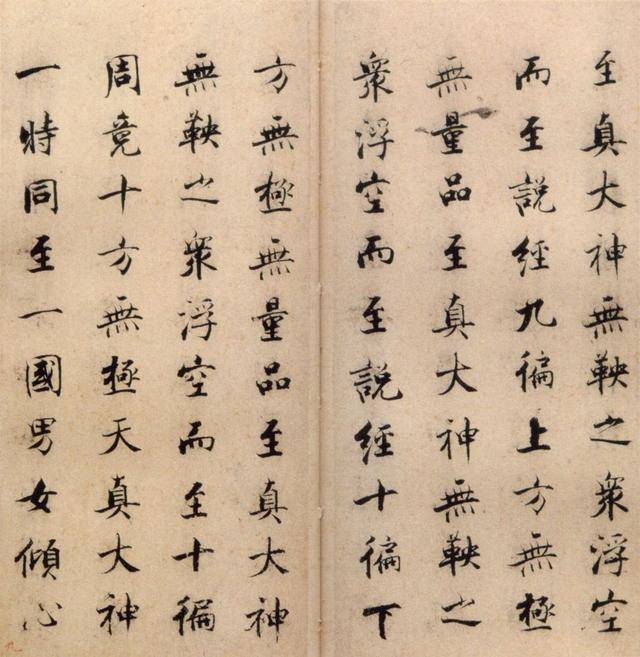 至真大神無鞅之衆浮空
而至說經九徧上方無極
無量品至真大神無鞅之
衆浮空而至說經十徧下
方無極無量品至真大神
無鞅之衆浮空而至十徧
周竟十方無極天真大神
一時同至一國男女傾心